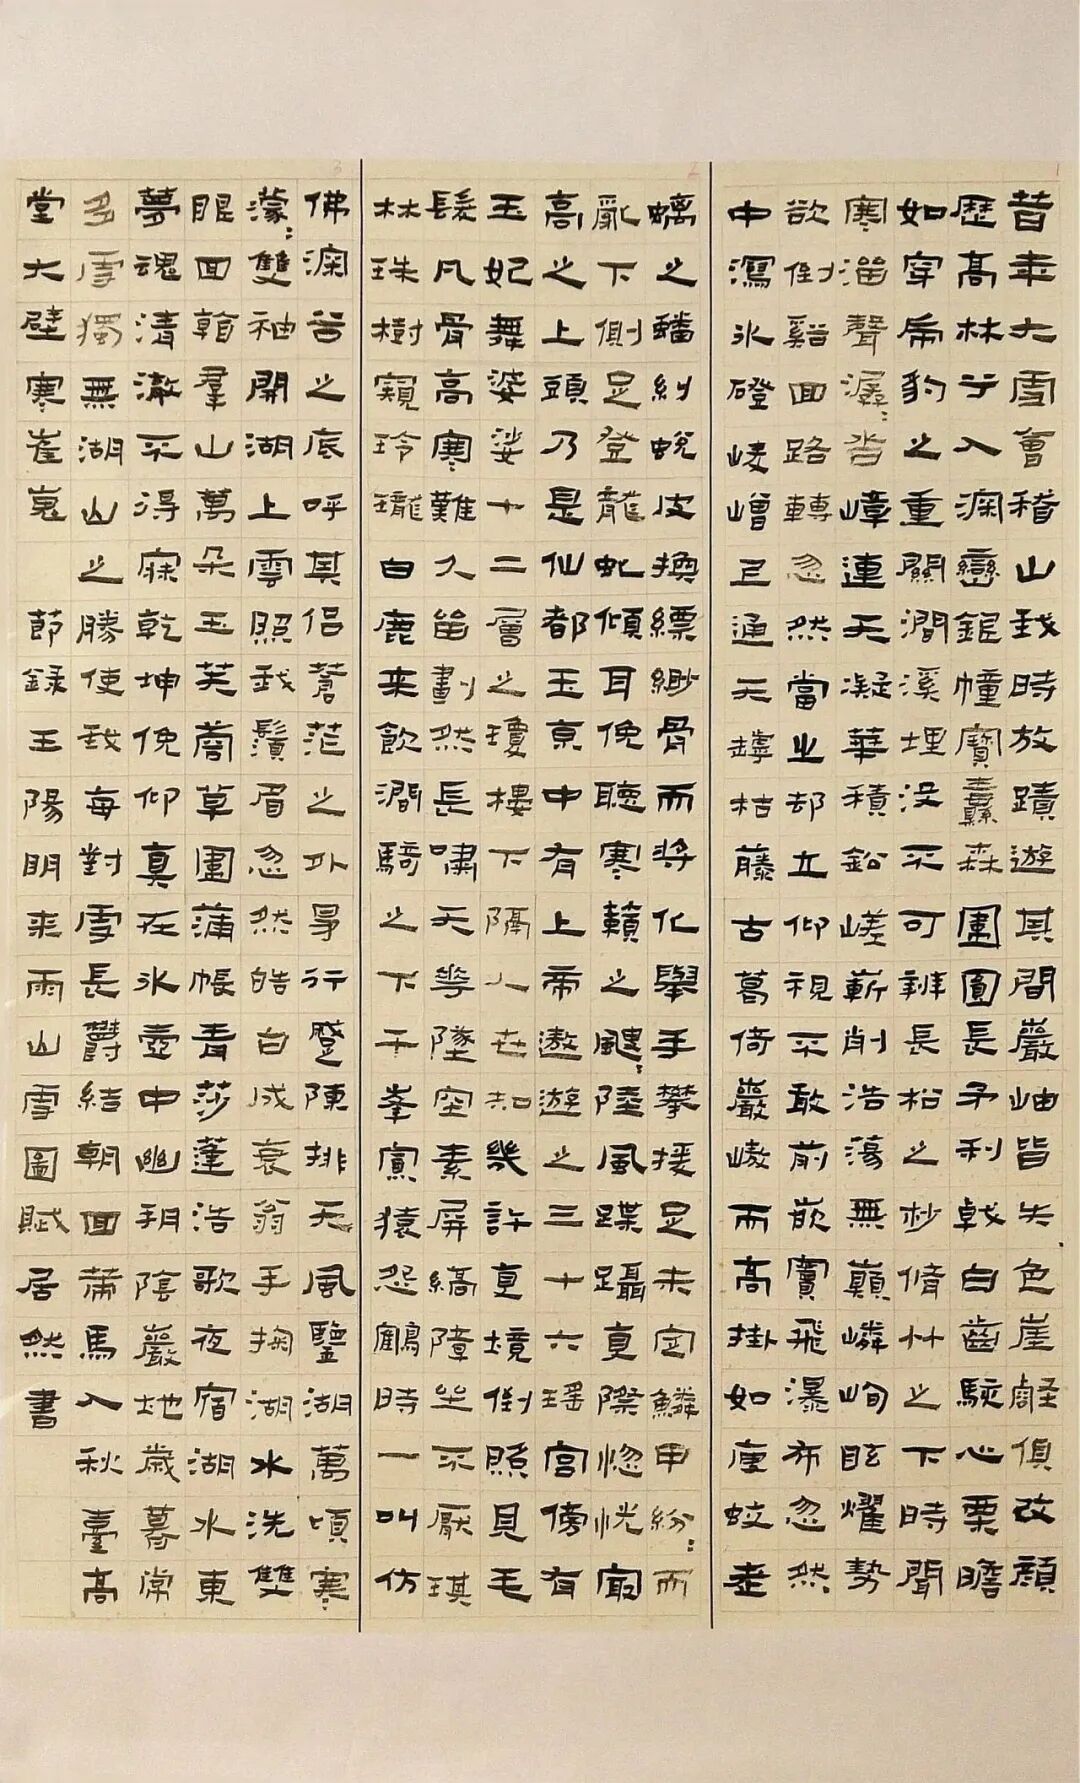 昔年大雪會稽山我時放蹟遊其間巖岫皆失色崖壑俱改顏
歷高林兮入深巒銀幢寶纛森圍圓長矛利戟白齒駭心栗膽
如穿虎豹之重關澗溪埋沒不可辨長松之杪脩竹之下時聞
寒溜聲潺〻沓嶂連天凝華積鉛嵯嶄削浩蕩無巔嶙峋眩耀勢
欲倒谿回路轉忽然當止却立仰視不敢前嵌竇飛瀑布忽然
中瀉冰磴崚嶒已通天罅枯藤古葛倚巖嶔而高掛如瘦蛟老
螭之蟠糾蛻皮換縹緲骨而將化舉手攀援足未定鱗甲紛〻而
亂下側足登龍虬傾耳俛聽寒籟之颼〻陸風蹀躡直際惚恍最
高之上頭乃是仙都玉京中有上帝遨遊之三十六瑤宮傍有
玉妃舞婆娑十二層之瓊樓下隔人世知幾許真境倒照見毛
髮凡骨高寒難久留劃然長嘯天花墜空素屏縞障坐不厭琪
林珠樹窺玲瓏白鹿來飲澗騎之下千峯寡猿怨鶴時一叫仿
佛深谷之底呼其侶蒼茫之外爭行蹙陳排天風鑒湖萬頃寒
濛〻雙袖開湖上雲照我鬚眉忽然皓白成衰翁手掬湖水洗雙
眼回看羣山萬朵玉芙蓉草團蒲帳青莎蓬浩歌夜宿湖水東
夢魂清澈不得寐乾坤俛仰真在冰壺中幽朔陰巖地歲暮常
多雪獨無湖山之勝使我每對雪長鬱結朝回策馬入秋臺高
堂大壁寒崔嵬 節錄王陽明來雨山雪圖賦居然書